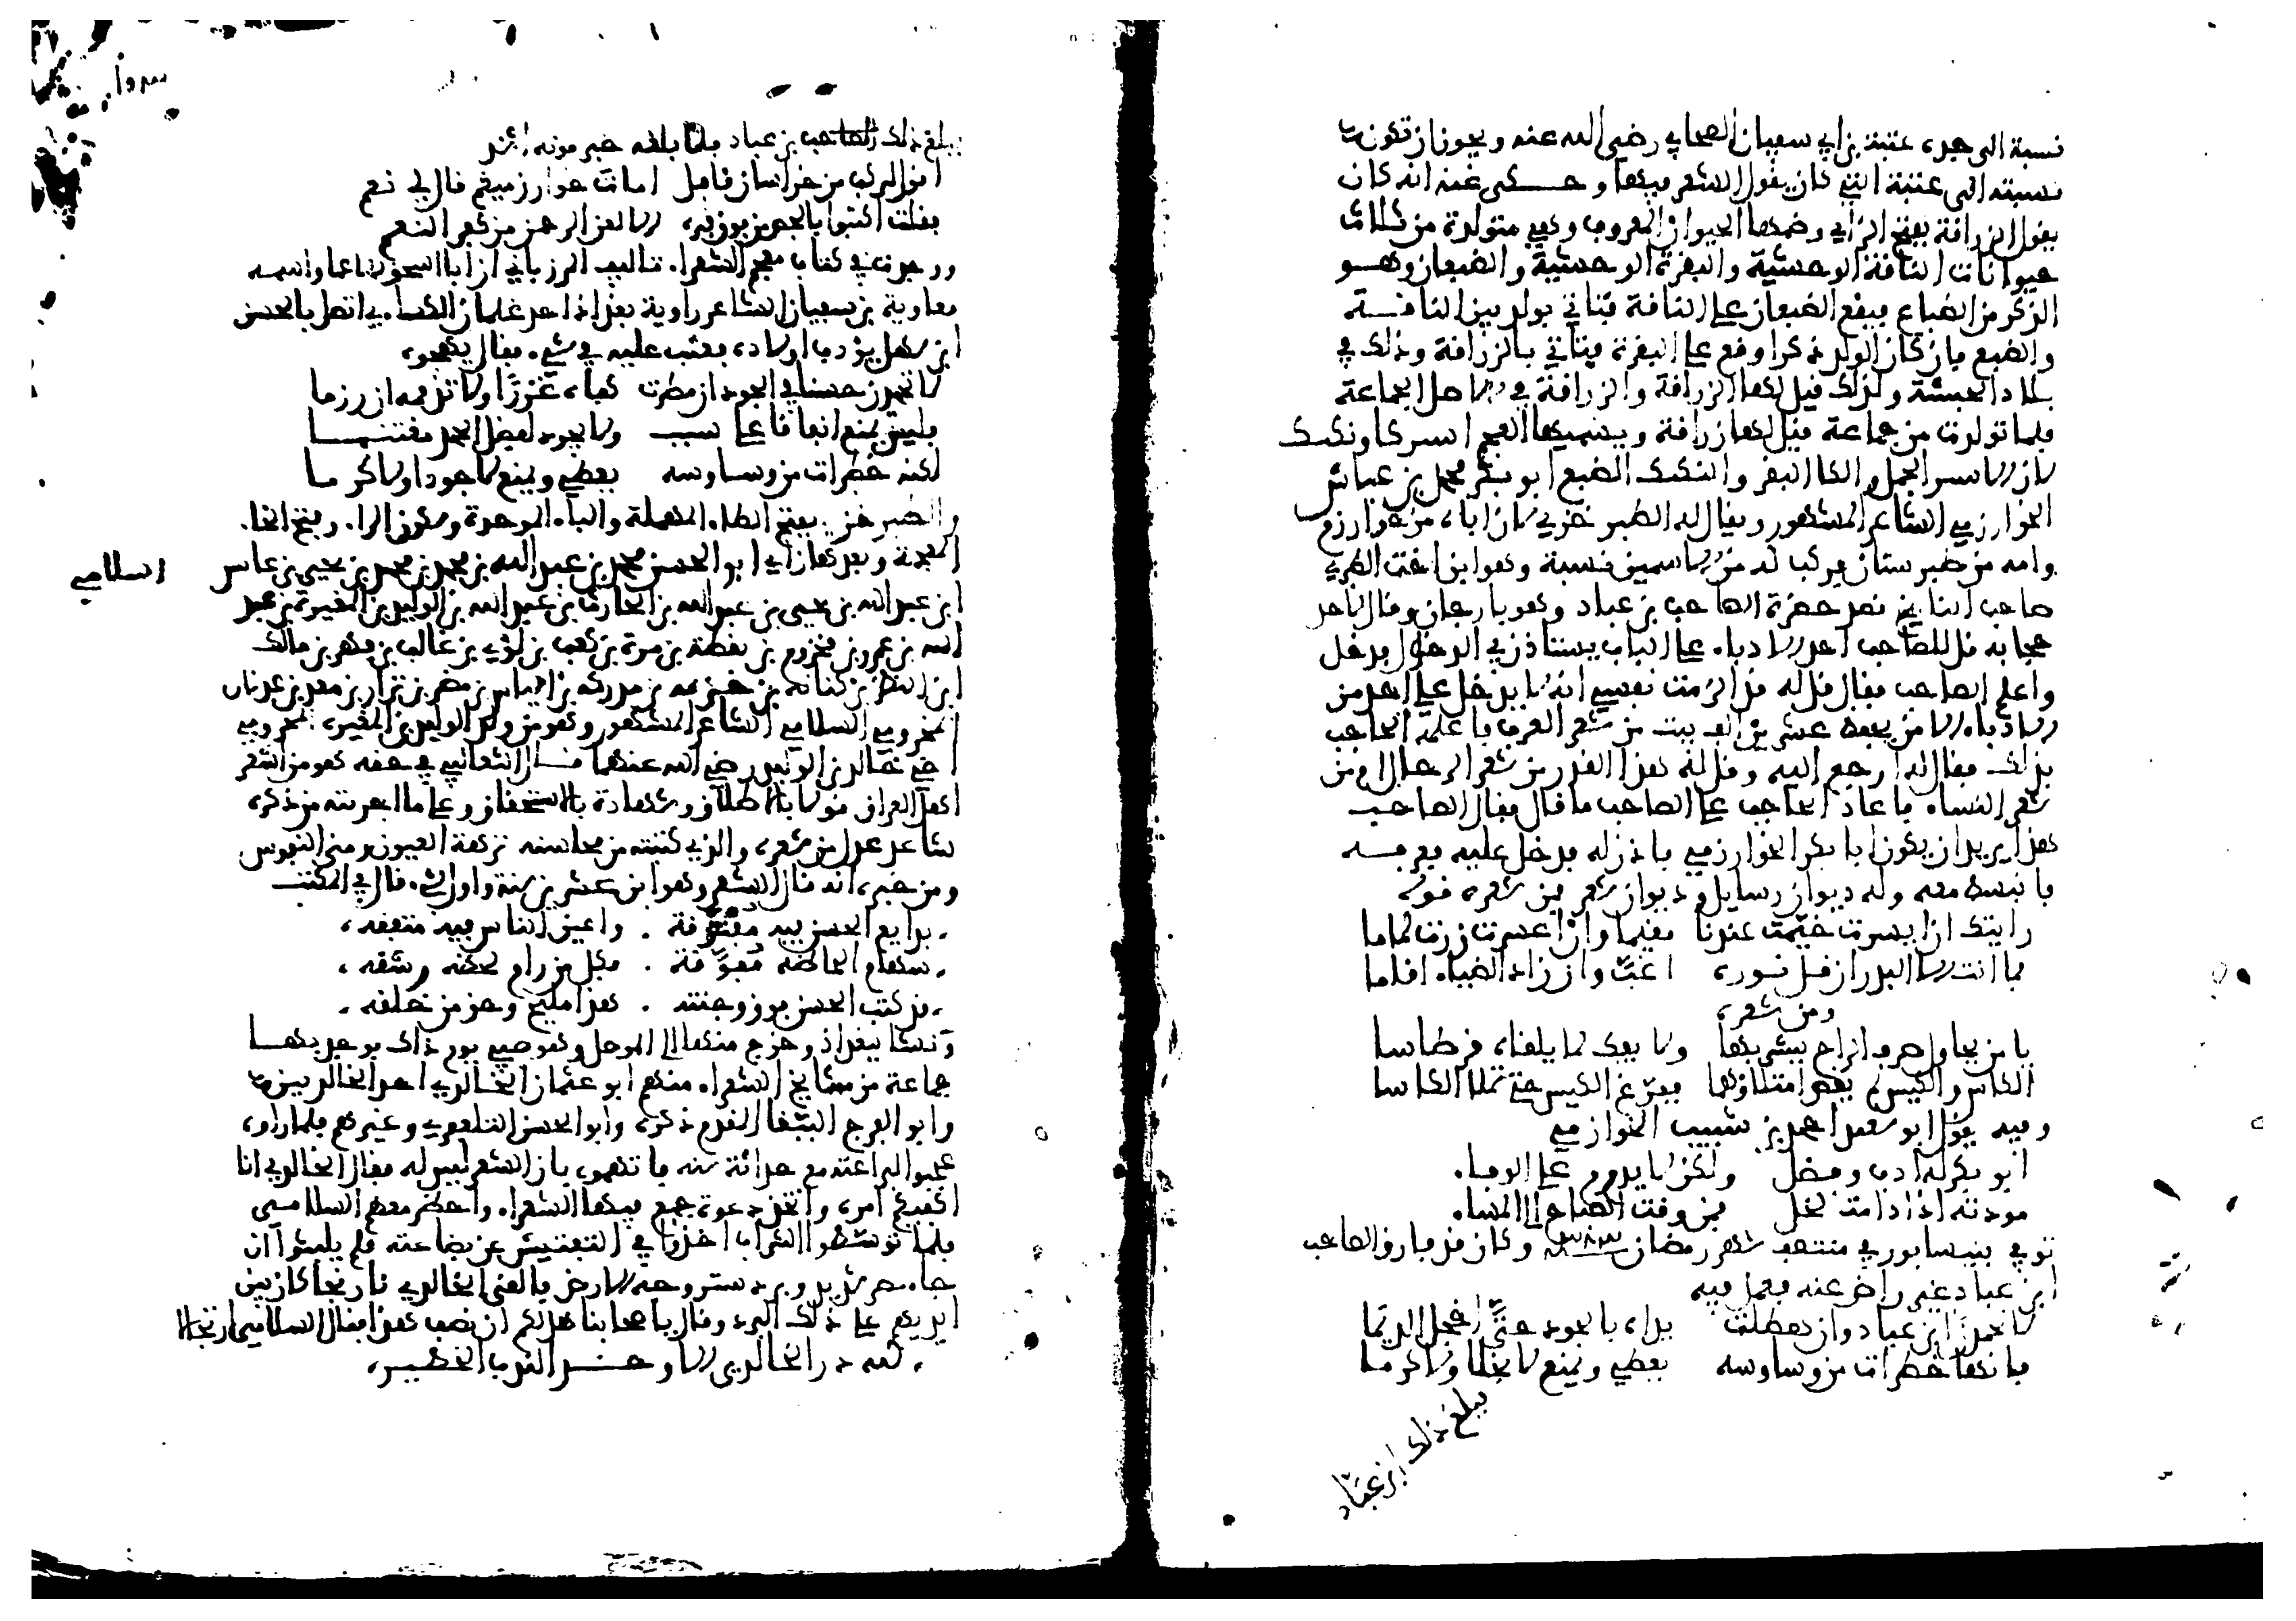 نسبة الى جده عتبة بن ابي سفيان الصحابي رضي الله عنه ويجوز ان تكون
نسبته الى عتبة التي كان يقول الشعر فيها وحكى عنه انه كان
يقول الزرافة بفتح الزاي وضمها الحيوان المعروف وهي متولدة من ثلاث
حيوانات الناقة الوحشية والبقرة الوحشية والضبعان وهو
الذكر من الضباع فيقع الضبعان على الناقة فتاتي بولد بين الناقة
والضبع فان كان الولد ذكرا وقع على البقرة فتاتي بالزرافة وذلك في
بلاد الحبشة ولذلك قيل لها الزرافة والزرافة في الاصل الجماعة
فلما تولدت من جماعة قيل لها زرافة ويسميها العجم اسركاونكك
لان الاسر الجمل والكا البقر والنكك الضبع ابو بكر محمد بن عباس
الخوارزمي الشاعر المشهور ويقال له الطبر خزي لان اباه من خوارزم
وامه من طبرستان فركب له من الاسمين نسبة وهو ابن اخت الطبري
صاحب التاريخ قصد حضرة الصاحب بن عباد وهو بارجان وقال لاحد
حجابه قل للصاحب احد الادباء على الباب يستاذن في الدخول فدخل
واعلم الصاحب فقال قل له قد الزمت نفسي انه لا يدخل علي احد من
الادباء الا من يحفظ عشرين الف بيت من شعر العرب فاعلمه الحاجب
بذلك فقال له ارجع اليه وقل له هذا القدر من شعر الرجال ام من
شعر النساء فاعاد الحاجب على الصاحب ما قال فقال الصاحب
هذا يريد ان يكون ابا بكر الخوارزمي فاذن له فدخل عليه فعرفه
فانبسط معه وله ديوان رسايل وديوان شعر فمن شعره قوله
رايتك ان ايسرت خيمت عندنا مقيما وان اعسرت زرت لماما
فما انت الا البدر ان قل نوره اغب وان زاد الضياء اقاما
ومن شعره
يا من يحاول صرف الراح يشربها ولا يفك لما يلقاه قرطاسا
الكاس والكيس لم يقض امتلاؤهما ففرغ الكيس حتى تملا الكاسا
وفيه يقول ابو سعيد احمد بن شبيب الخوارزمي
ابو بكر له ادب وفضل ولكن لا يدوم على الوفاء
مودته اذا دامت لخل فمن وقت الصباح الى المساء
توفي بنيسابور في منتصف شهر رمضان وكان قد فارق الصاحب
ابن عباد غير راض عنه فعمل فيه
لا تحمدن ابن عباد وان هطلت يداه بالجود حتى اخجل الديما
فانها خطرات من وساوسه يعطي ويمنع لا بخلا ولا كرما
فبلغ ذلك ابن عباد
فبلغ ذلك الصاحب بن عباد فلما بلغه خبر موته انشد
اقول لركب من خراسان قافل امات خوارزميكم قال لي نعم
فقلت اكتبوا بالجص من فوق قبره الا لعن الرحمن من كفر النعم
ووجدت في كتاب معجم الشعراء تاليف المرزباني ان ابا القاسم الاعمى واسمه
معاوية بن سفيان الشاعر راوية بغداد احد غلمان الكسائي اتصل بالحسن
ابن سهل يؤدب اولاده فعتب عليه في شيء فقال يهجوه
لا تحمدن حسنا في الجود ان مطرت كفاه غزرا ولا تذممه ان رزما
فليس يمنع ابقاء على نسب ولا يجود لفضل الحمد مغتنما
لكنه خطرات من وساوسه يعطي ويمنع لا جودا ولا كرما
والطبر خزي بفتح الطاء المهملة والباء الموحدة وسكون الراء وفتح الخاء
المعجمة وبعدها زاي ابو الحسن محمد بن عبد الله بن محمد بن محمد بن يحيى بن
اسلامي
ابن عبد الله بن يحيى بن عبد الله بن الحارث بن عبد الله بن الوليد بن المغيرة بن عبد
الله بن عمرو بن مخزوم بن يقظة بن مرة بن كعب بن لؤي بن غالب بن فهر بن مالك
ابن النظر بن كنانة بن خزيمة بن مدركة بن الياس بن مضر بن نزار بن معد بن عدنان
المخزومي السلامي الشاعر المشهور وهو من ولد الوليد بن المغيرة المخزومي
اخي خالد بن الوليد رضي الله عنهما قال الثعالبي في حقه هو من اشعر
اهل العراق قولا بالاطلاق وشهادة بالاستحقاق وعلى ما اجريته من ذكره
شاهد عدل من شعره والذي كتبته من محاسنه نزهة العيون ومنى النفوس
ومن خبره انه قال الشعر وهو ابن عشر سنة واول شيء قال في المكتب
بدايع الحسن فيه مفترقة واعين الناس فيه متفقه
سهام الحاظه مفوقة فكل من رام لحظه رشقه
قد كتب الحسن فوق وجنته هذا مليح وحق من خلقه
ونشا ببغداد وخرج منها الى الموصل وهو صبي يوم ذاك فوجد بها
جماعة من مشايخ الشعراء منهم ابو عثمان الخالدي احد الخالديين
وابو الفرج الببغا المقدم ذكره وابو الحسن التلعفري وغيرهم فلما راوه
عجبوا لبراعته مع حداثة سنه فاتهموه بان الشعر ليس له فقال الخالدي انا
اكفيكم امره واتخذ دعوة جمع فيها الشعراء واحضر معهم السلامي
فلما توسطوا الشراب اخذوا في التفتيش عن بضاعته فلم يلبثوا ان
جاء مطر شديد وبرد ستر وجه الارض فالقى الخالدي نارنجا كان بين
ايديهم على ذلك البرد وقال يا صحابنا هل لكم ان نصف هذا فقال السلامي ارتجالا
لله در الخالدي الاوحد الندب الخطير